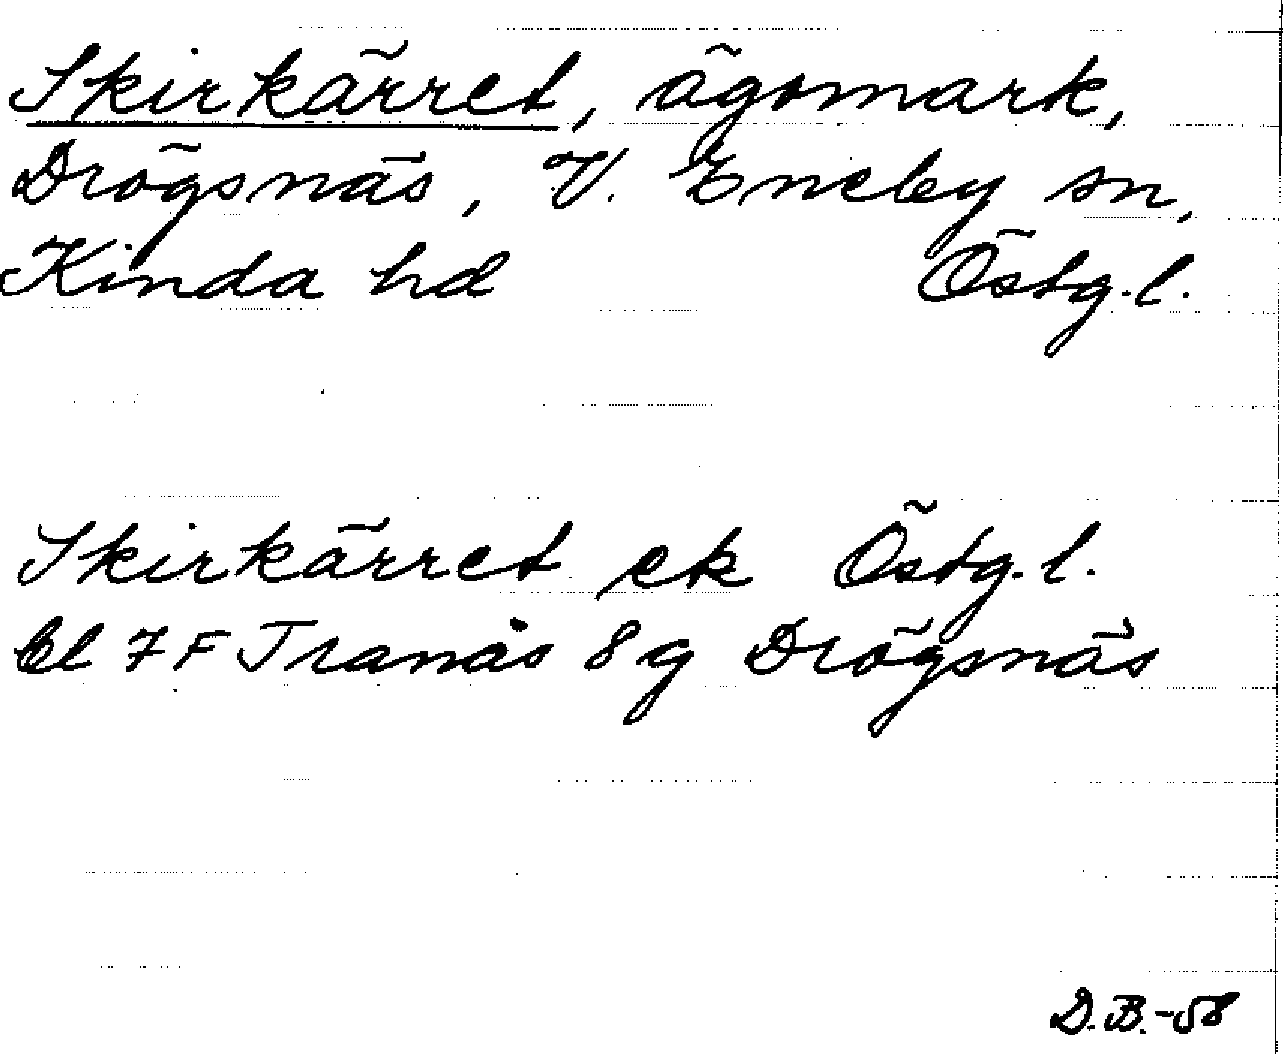 Skirkärret, ägomark,
Drögsnäs, V. Eneby sn,
Kinda hd Östg.l.
Skirkärret ek Östg.l.
bl 7 F Tranås 8 g Drögsnäs
D.B.-58